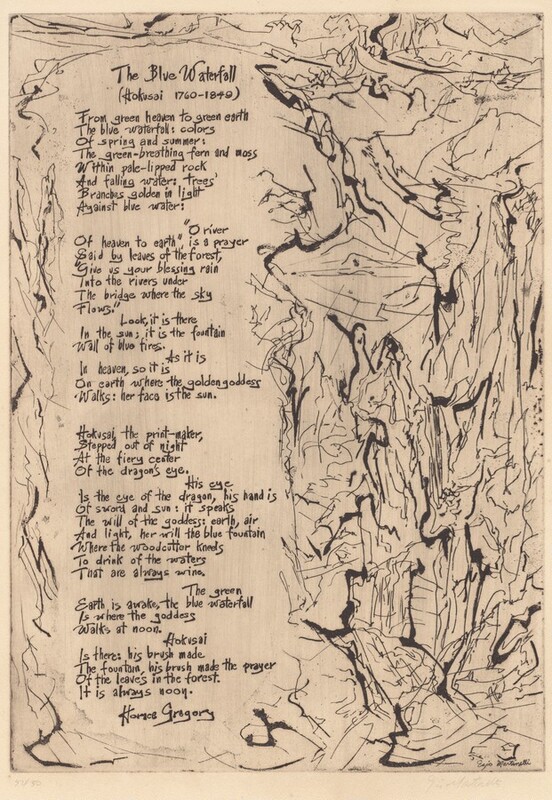 The Blue Waterfall
(Hokusai 1760-1849)
From green heaven to green earth
The blue waterfall: colors
Of spring and summer:
The green-breathing fern and moss
Within pale-lipped rock
And falling water: Trees'
Branches golden in light
Against blue water:
"O river
Of heaven to earth", is a prayer
Said by leaves of the forest,
"Give us your blessing rain
Into the rivers under
The bridge where the sky
Flows."
Look, it is there
In the sun; it is the fountain
Wall of blue fires.
As it is
In heaven, so it is
On earth where the golden goddess
Walks: her face is the sun.
Hokusai, the print-maker,
Stepped out of night
At the fiery center
Of the dragon's eye.
His eye
Is the eye of the dragon, his hand is
Of sword and sun: it speaks
The will of the goddess: earth, air
And light, her will the blue fountain
Where the woodcutter kneels
To drink of the waters
That are always wine.
The green
Earth is awake, the blue waterfall
Is where the goddess
Walks at noon.
Hokusai
Is there: his brush made
The fountain, his brush made the prayer
Of the leaves in the forest.
It is always noon.
Horace Gregory
Ezio Martinelli